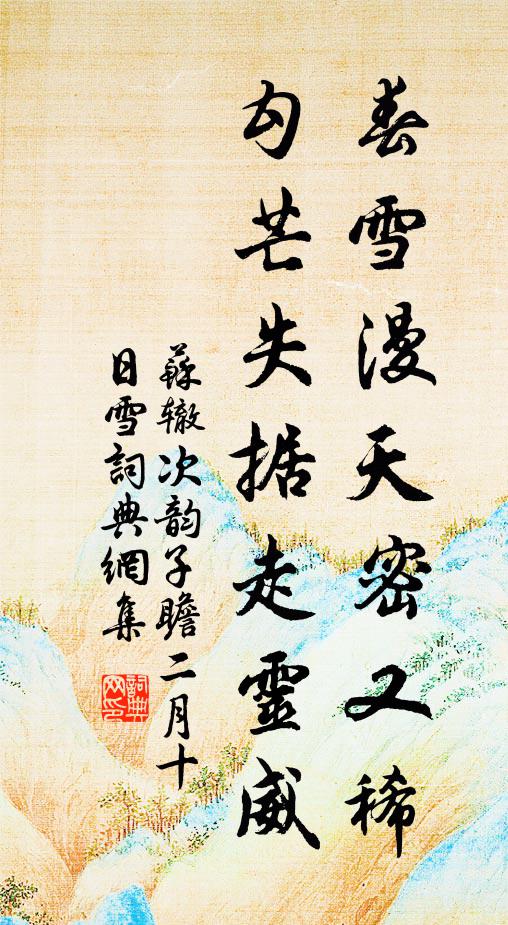 春雪漫天密又稀
勾芒失据走靈威
蘇辙次韵子瞻二月十
日雪詞典網集
詞典
网印